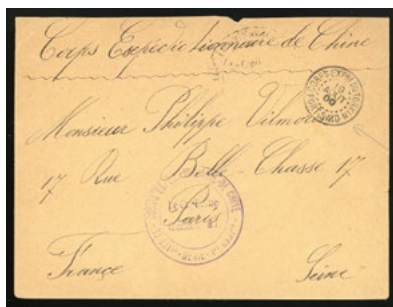 Corps Expéditionnaire de Chine
Monsieur Philippe Vilmorin
17 Rue Belle-Chasse 17
Paris
France Seine